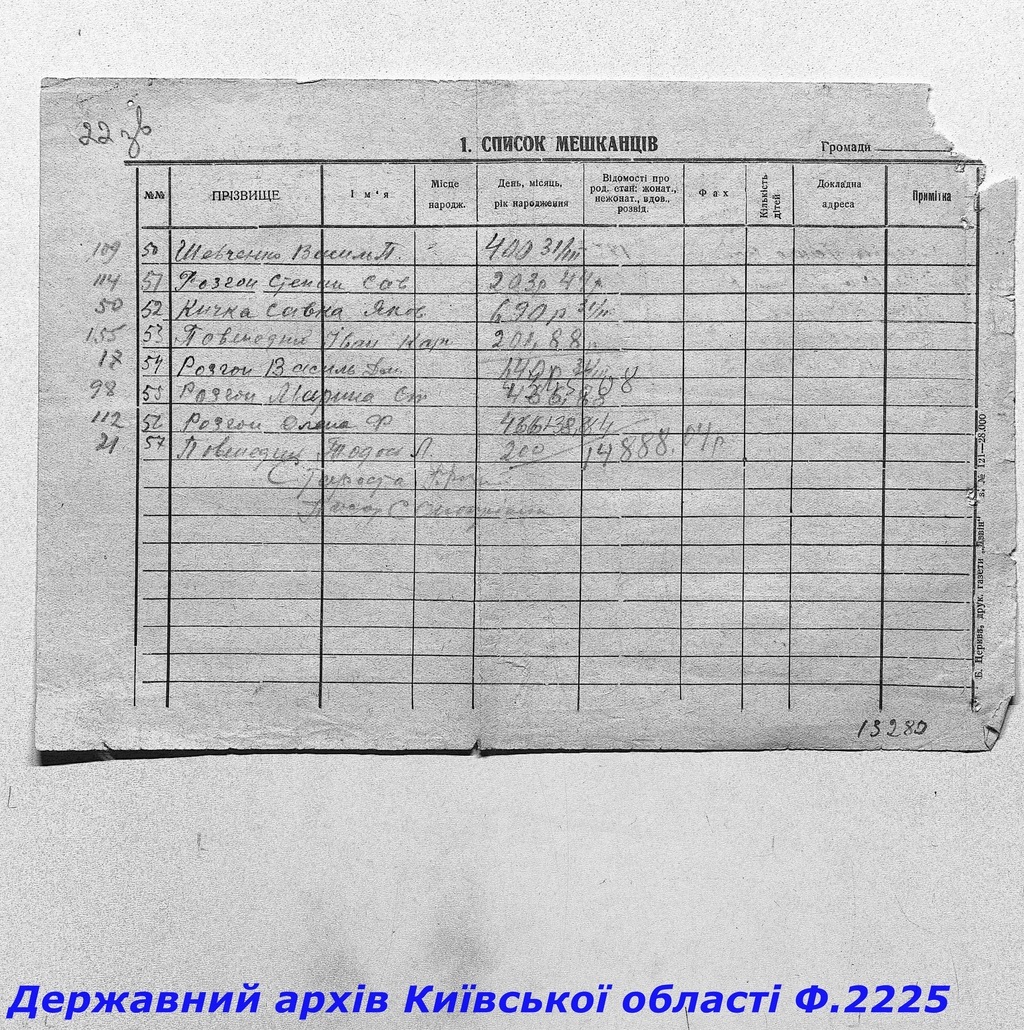 22 зв
1. СПИСОК МЕШКАНЦІВ
Громади
№№ ПРІЗВИЩЕ Ім'я Місце народж. День, місяць, рік народження Відомості про род. стан: жонат., нежонат., вдов., розвід. Фах Кількість дітей Докладна адреса Примітка
109 50 Шевченко Василь П. 400
114 51 Розгон Степан Сав 203р 44р
50 52 Кичка Савка Яков 690р
155 53 Іван Кар 201, 88
17 54 Розгон Василь Дм 140р
98 55 Розгон Марина Ст
112 56 Розгон Олена Ф
21 57 Тодос Л. 200 14888.04р
Староста
Б. Церква, друк. газети „Дзвін" з. № 121—28.000
13280
Державний архів Київської області Ф.2225